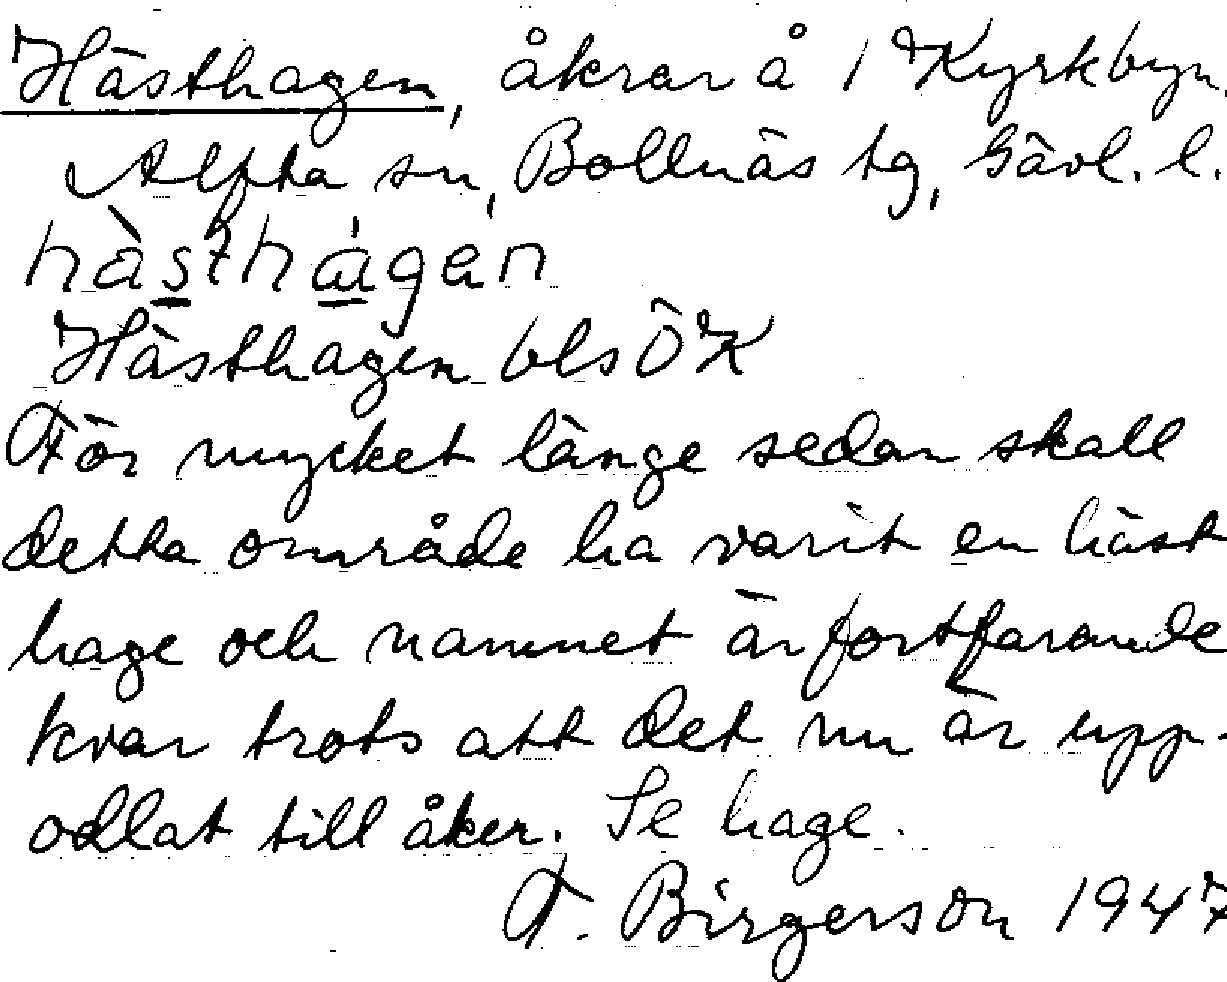 Hästhagen, åkrar å 1 Kyrkbyn.
Alfta sn, Bollnäs tg, Gävl. l.
hàsthágen
Hästhagen bls ÖK
För mycket länge sedan skall
detta område ha varit en häst
hage och namnet är fortfarande
kvar trots att det nu är upp-
odlat till åker. Se hage.
F. Birgerson 1947